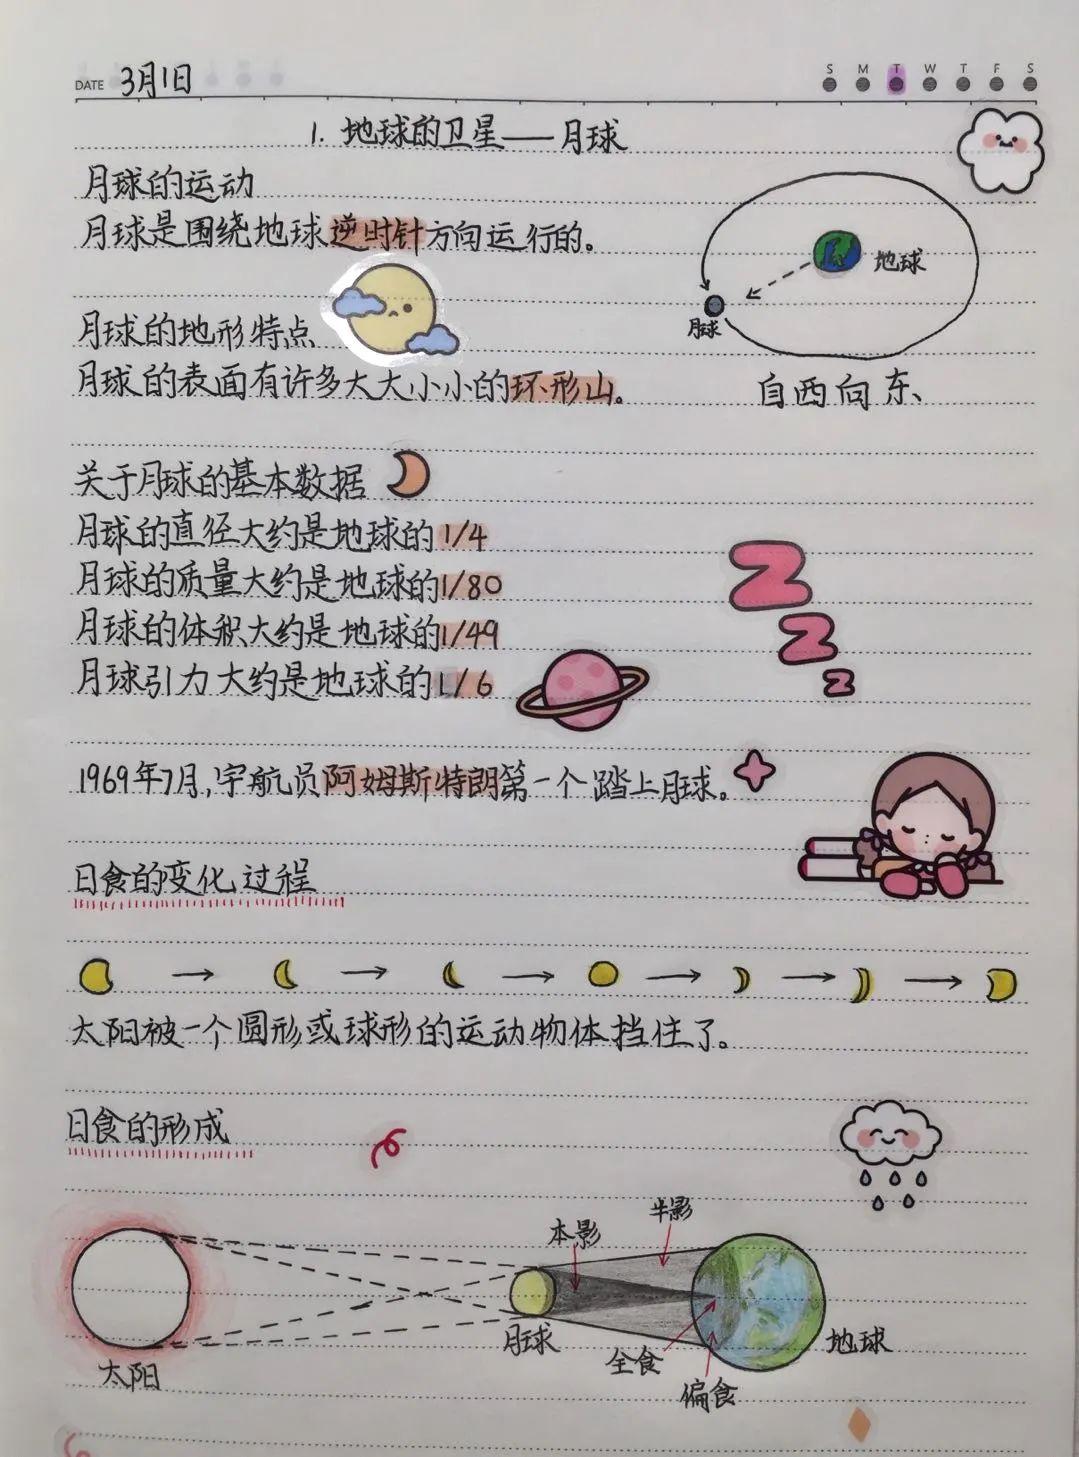 DATE 3月1日
S M T W T F S
1. 地球的卫星——月球
月球的运动
月球是围绕地球逆时针方向运行的。
地球
月球
月球的地形特点
月球的表面有许多大大小小的环形山。
自西向东、
关于月球的基本数据
月球的直径大约是地球的1/4
月球的质量大约是地球的1/80
月球的体积大约是地球的1/49
月球引力大约是地球的1/6
Z
Z
Z
1969年7月,宇航员阿姆斯特朗第一个踏上月球。
日食的变化过程
太阳被一个圆形或球形的运动物体挡住了。
日食的形成
半影
本影
月球
地球
全食
太阳
偏食